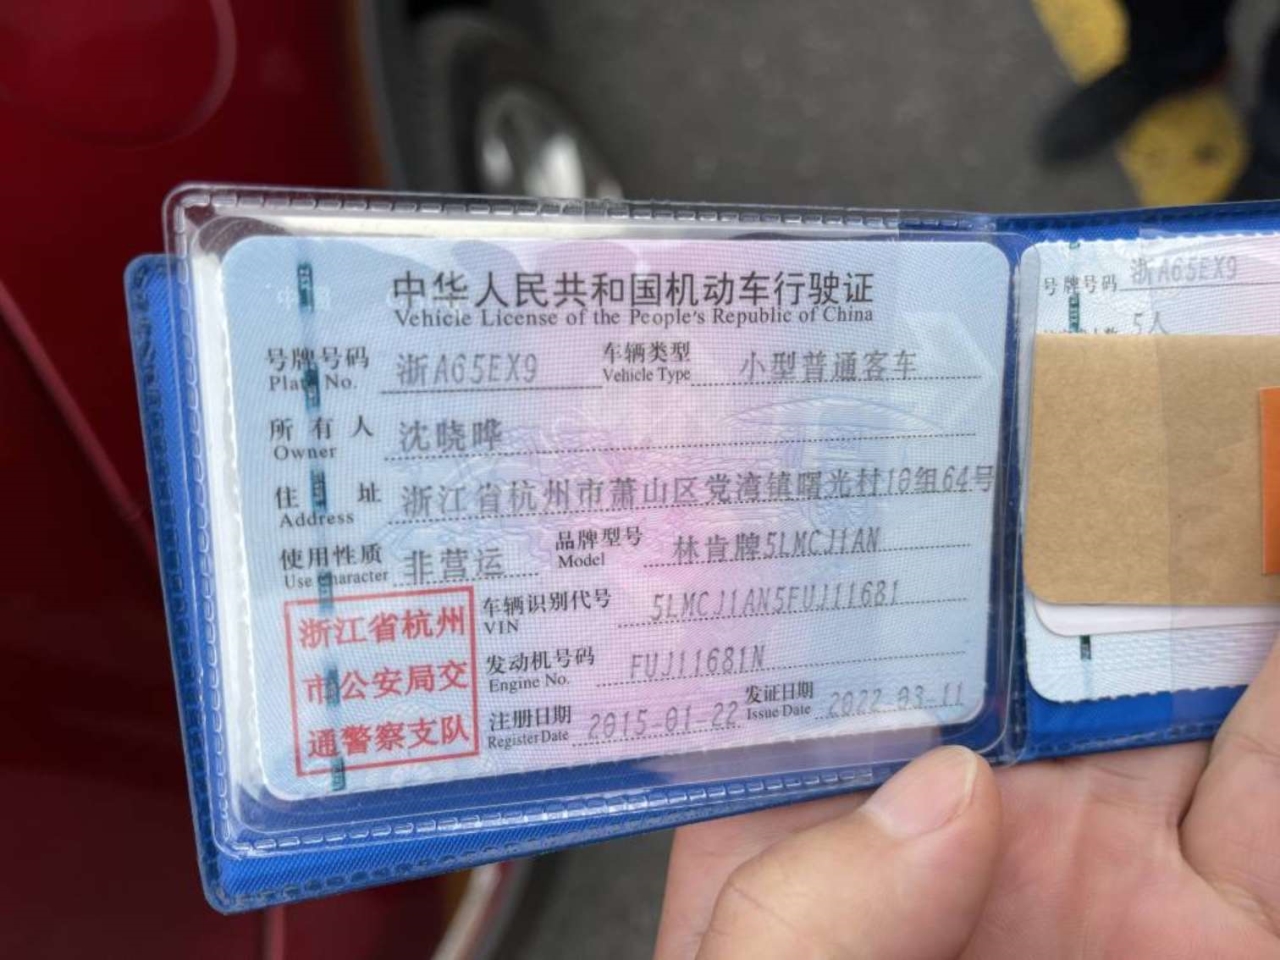 中华人民共和国机动车行驶证
Vehicle License of the People's Republic of China
号牌号码 浙A65EX9 车辆类型 小型普通客车
Plate No. Vehicle Type
所有人 沈晓晔
Owner
住址 浙江省杭州市萧山区党湾镇曙光村10组64号
Address
使用性质 非营运 品牌型号 林肯牌5LMCJ1AN
Use Character Model
浙江省杭州
市公安局交
通警察支队
车辆识别代号 5LMCJ1AN5FUJ11681
VIN
发动机号码 FUJ11681N
Engine No.
注册日期 2015-01-22 发证日期 2022-03-11
Register Date Issue Date
号牌号码 浙A65EX9
5人